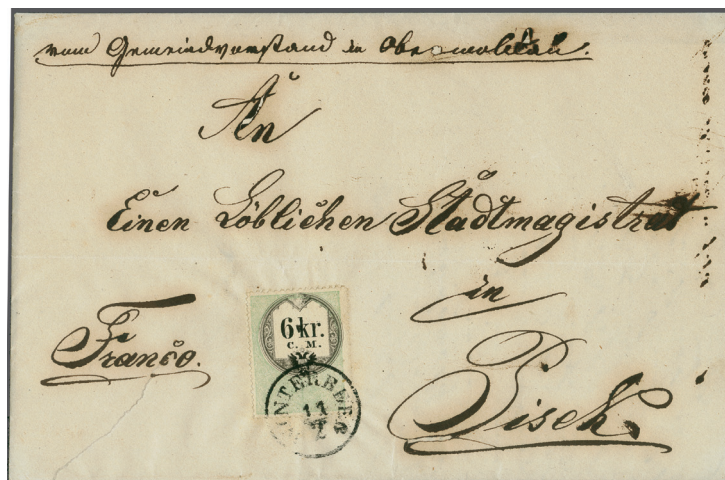 vom Gemeindvorstand in Obermoldau.
An
Einen Löblichen Stadtmagistrat
in
Franco.
Pisek
6 kr.
C. M.
WINTERBERG
11
2